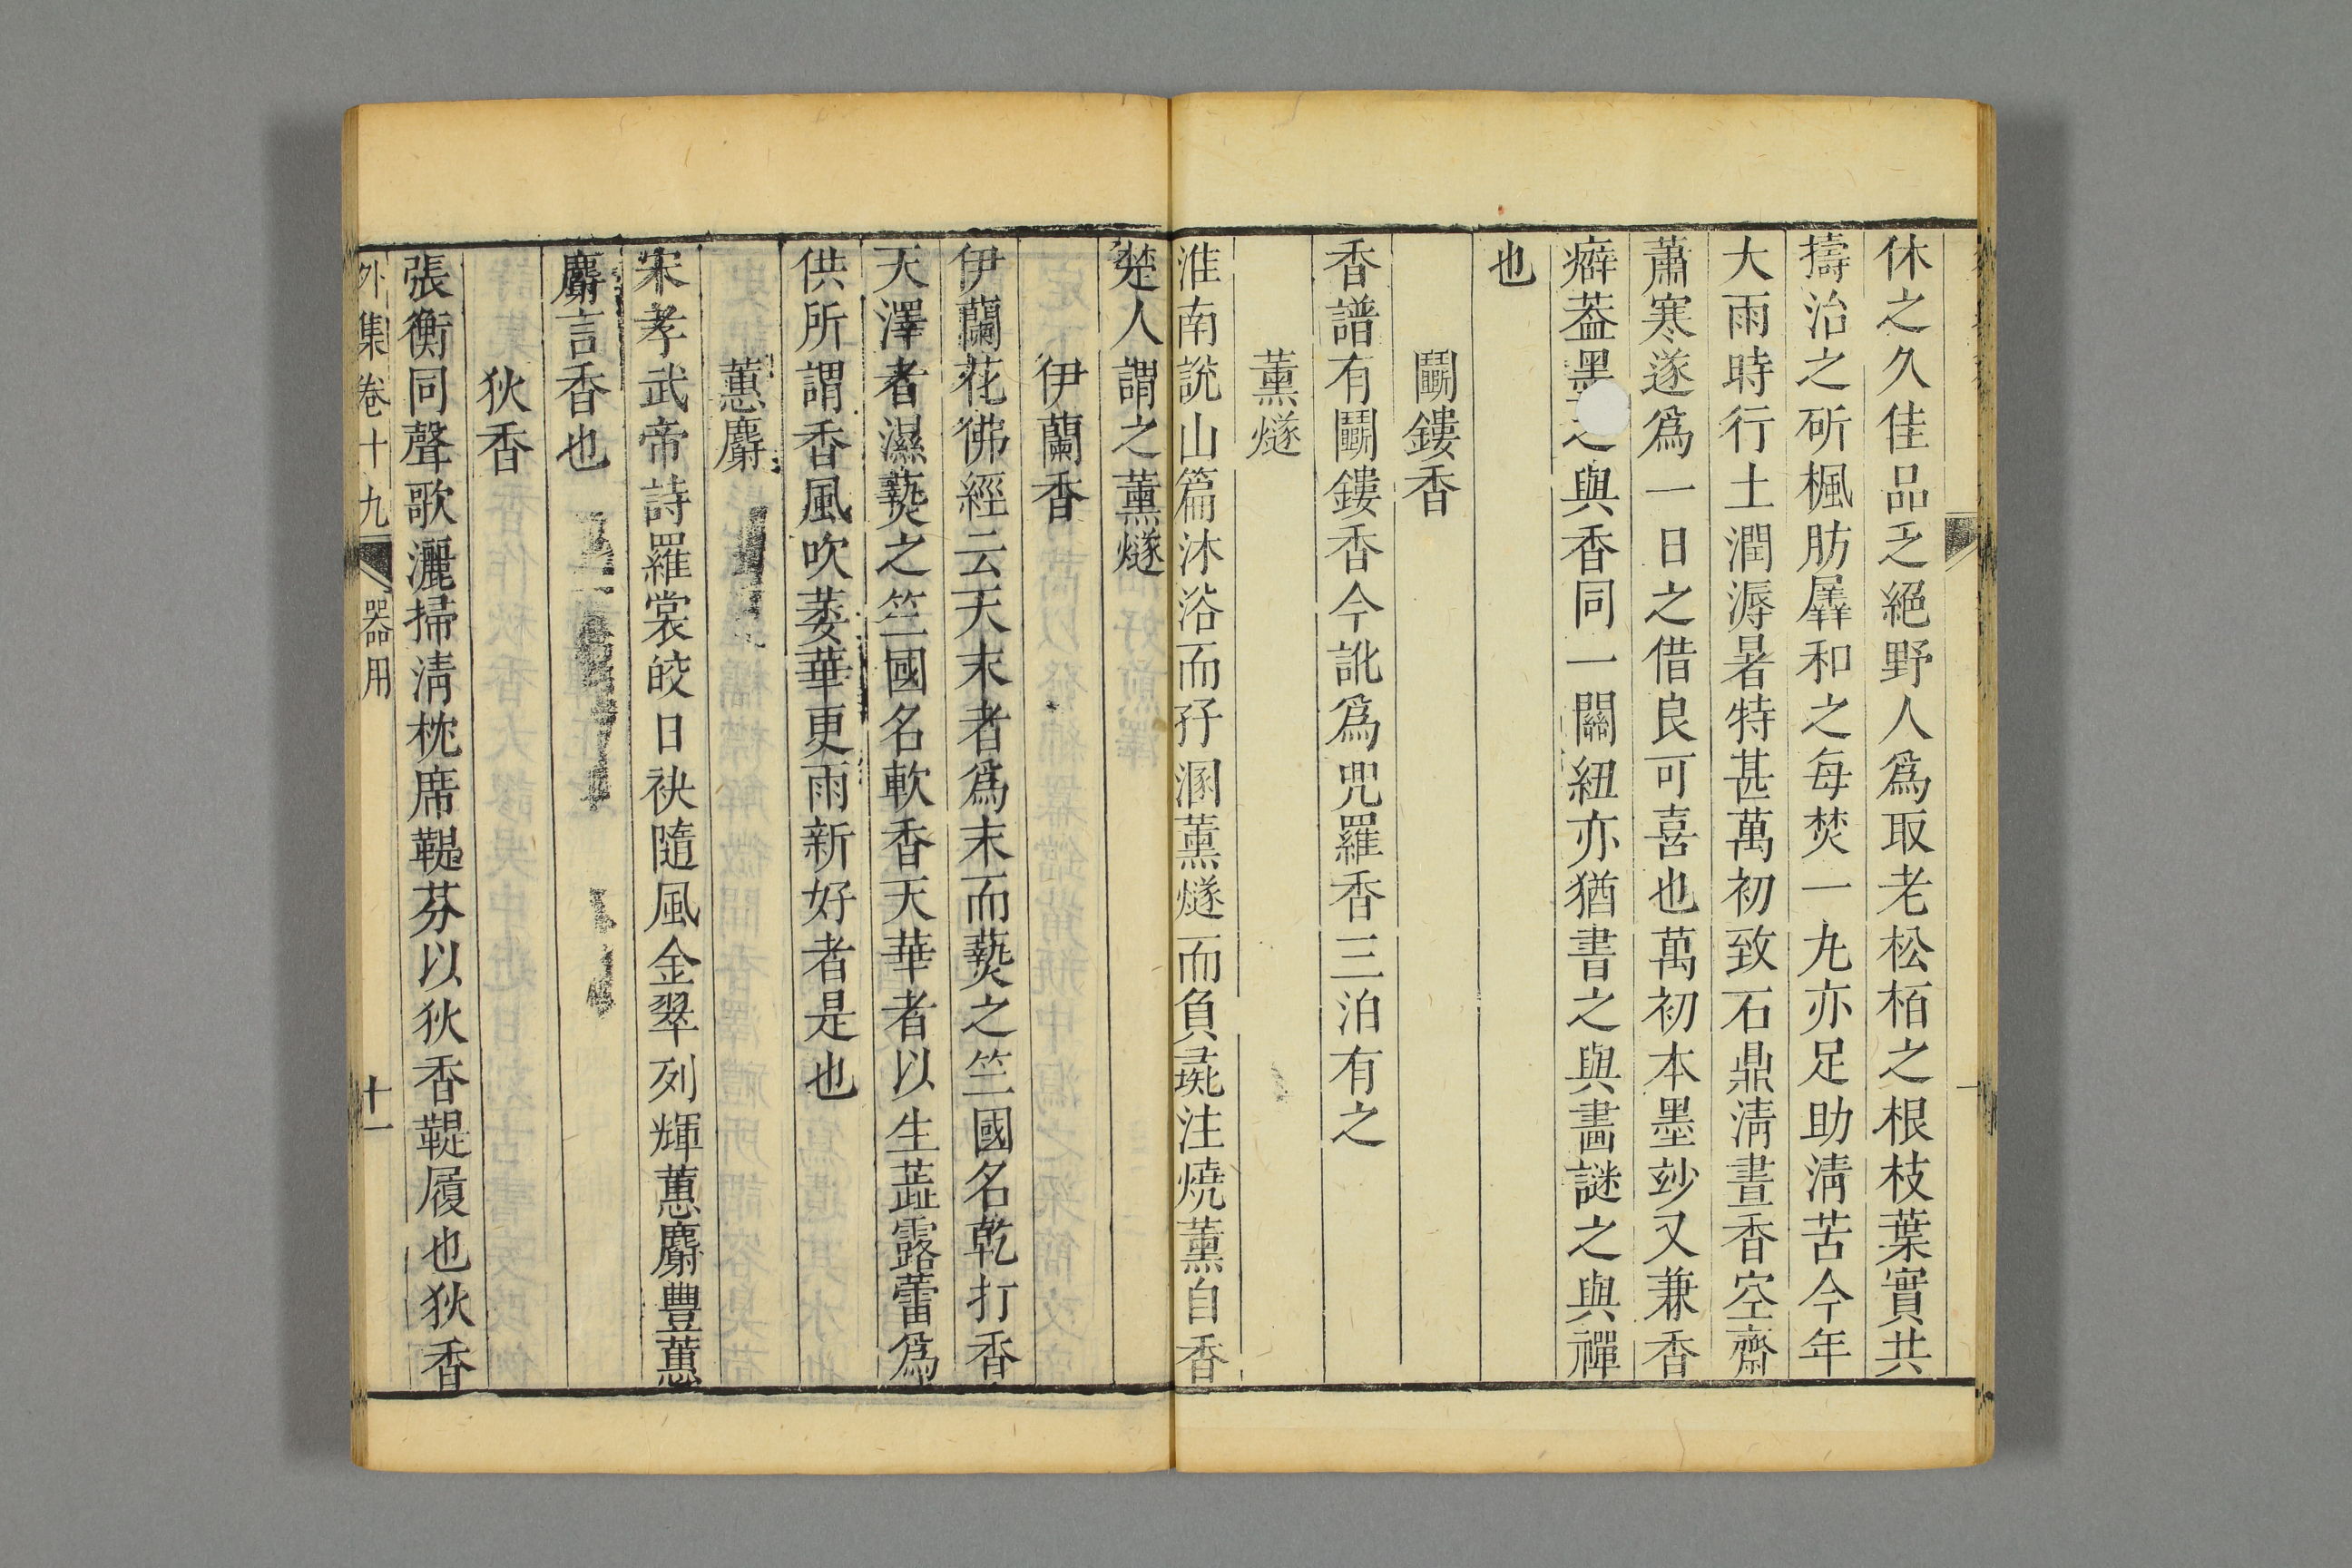 休之久佳品乏絕野人爲取老松栢之根枝葉實共
擣治之斫楓肪羼和之每焚一丸亦足助淸苦今年
大雨時行土潤溽暑特甚萬初致石鼎淸晝香空齋
蕭寒遂爲一日之借良可喜也萬初本墨妙又兼香
癖葢墨之與香同一關紐亦猶書之與畵謎之與禪
也
鬭鏤香
香譜有鬭鏤香今訛爲兜羅香三泊有之
薰燧
淮南說山篇沐浴而抒溷薰燧而負彘注燒薰自香
楚人謂之薰燧
伊蘭香
伊蘭花佛經云天末者爲末而爇之竺國名乾打香
天澤者濕爇之竺國名軟香天華者以生蘂露蕾爲
供所謂香風吹萎華更雨新好者是也
蕙麝
宋孝武帝詩羅裳皎日袂隨風金翠列輝蕙麝豐蕙
麝言香也
狄香
張衡同聲歌灑掃淸枕席鞮芬以狄香鞮履也狄香
外集卷十九 器用 十一